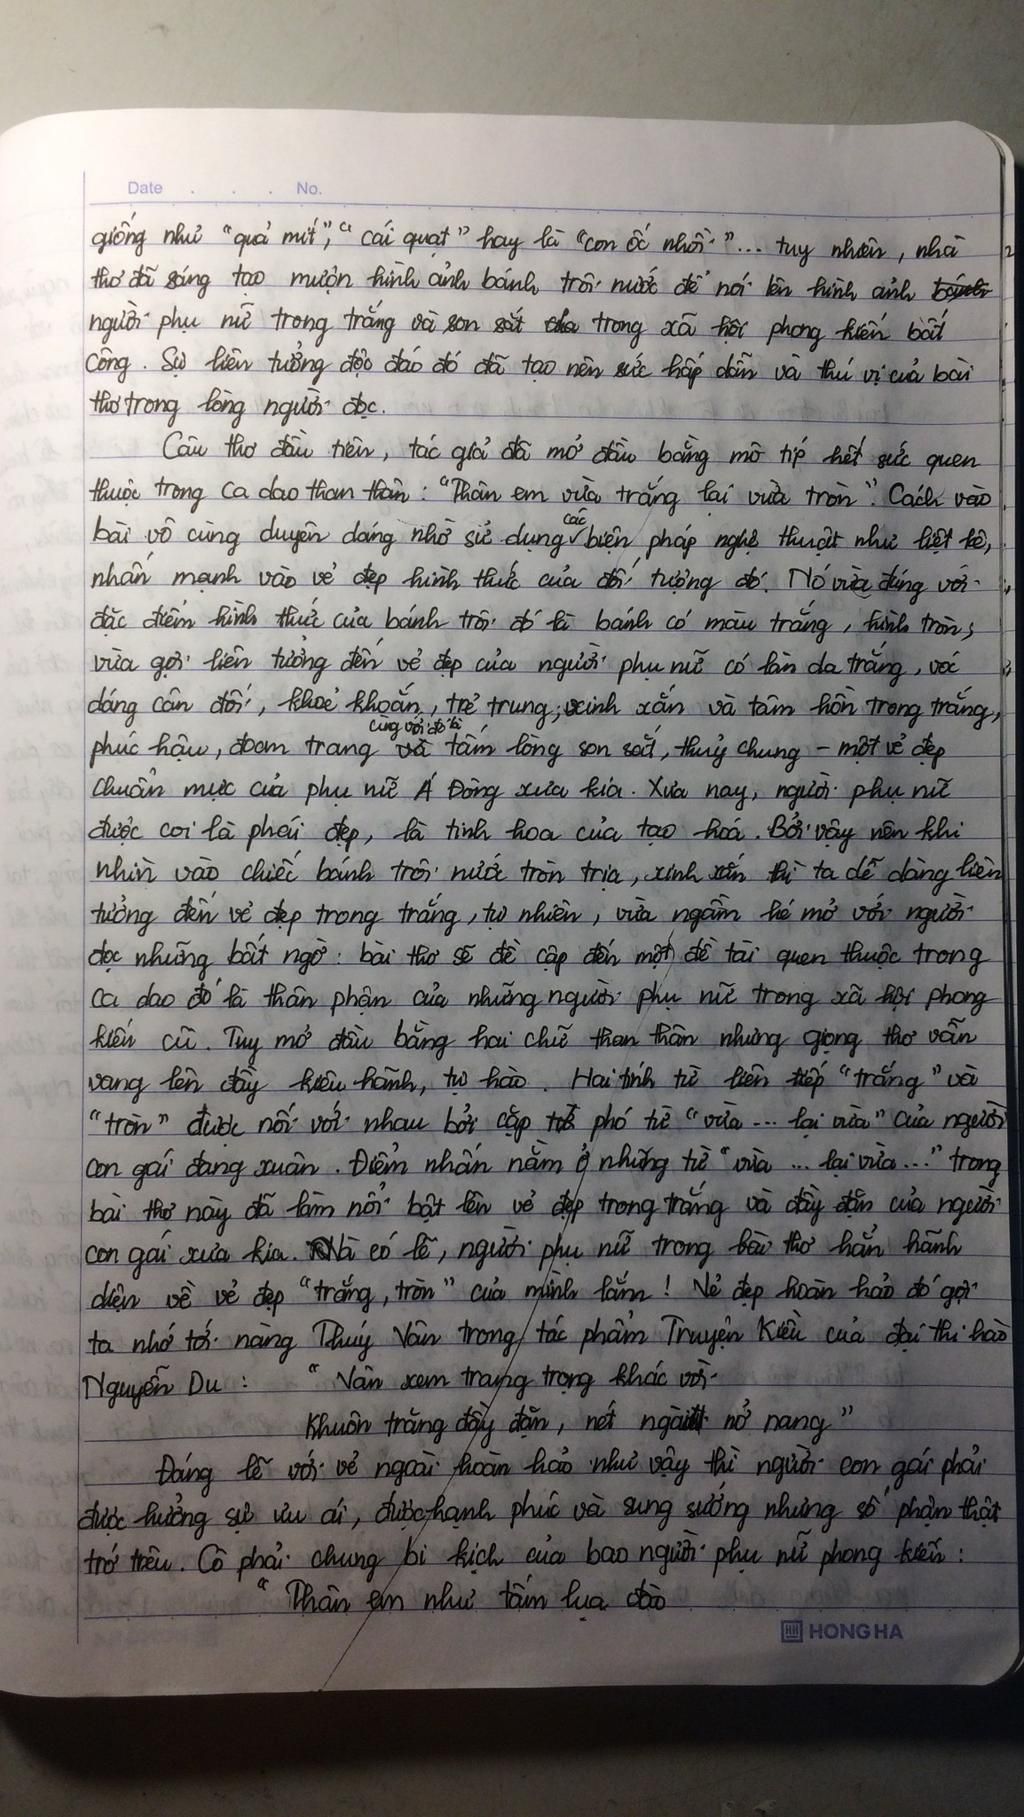 Date . . . No.
giống như "quả mít", "cái quạt" hay là "con ốc nhồi"... tuy nhiên, nhà
thơ đã sáng tạo mượn hình ảnh bánh trôi nước để nói lên hình ảnh
người phụ nữ trong trắng và son sắt trong xã hội phong kiến bất
công. Sự liên tưởng độc đáo đó đã tạo nên sức hấp dẫn và thú vị của bài
thơ trong lòng người đọc.
Câu thơ đầu tiên, tác giả đã mở đầu bằng mô típ hết sức quen
thuộc trong ca dao than thân: "Thân em vừa trắng lại vừa tròn". Cách vào
bài vô cùng duyên dáng nhờ sử dụng các biện pháp nghệ thuật như liệt kê,
nhấn mạnh vào vẻ đẹp hình thức của đối tượng đó. Nó vừa đúng với
đặc điểm hình thức của bánh trôi đó là bánh có màu trắng, hình tròn;
vừa gợi liên tưởng đến vẻ đẹp của người phụ nữ có làn da trắng, vóc
dáng cân đối, khoẻ khoắn, trẻ trung, xinh xắn và tâm hồn trong trắng,
phúc hậu, đoan trang cùng với đó là tấm lòng son sắt, thuỷ chung - một vẻ đẹp
chuẩn mực của phụ nữ Á Đông xưa kia. Xưa nay, người phụ nữ
được coi là phái đẹp, là tinh hoa của tạo hoá. Bởi vậy nên khi
nhìn vào chiếc bánh trôi nước tròn trịa, xinh xắn thì ta dễ dàng liên
tưởng đến vẻ đẹp trong trắng, tự nhiên, vừa ngầm hé mở với người
đọc những bất ngờ: bài thơ sẽ đề cập đến một đề tài quen thuộc trong
ca dao đó là thân phận của những người phụ nữ trong xã hội phong
kiến cũ. Tuy mở đầu bằng hai chữ than thân nhưng giọng thơ vẫn
vang lên đầy kiêu hãnh, tự hào. Hai tính từ liên tiếp "trắng" và
"tròn" được nối với nhau bởi cặp phó từ "vừa ... lại vừa" của người
con gái đang xuân. Điểm nhấn nằm ở những từ "vừa ... lại vừa..." trong
bài thơ này đã làm nổi bật lên vẻ đẹp trong trắng và đầy đặn của người
con gái xưa kia. Và có lẽ, người phụ nữ trong bài thơ hẳn hãnh
diện về vẻ đẹp "trắng, tròn" của mình lắm! Vẻ đẹp hoàn hảo đó gợi
ta nhớ tới nàng Thuý Vân trong tác phẩm Truyện Kiều của đại thi hào
Nguyễn Du: "Vân xem trang trọng khác vời
Khuôn trăng đầy đặn, nét ngài nở nang"
Đáng lẽ với vẻ ngoài hoàn hảo như vậy thì người con gái phải
được hưởng sự ưu ái, được hạnh phúc và sung sướng nhưng số phận thật
trớ trêu. Cô phải chung bi kịch của bao người phụ nữ phong kiến:
"Thân em như tấm lụa đào
HONG HA